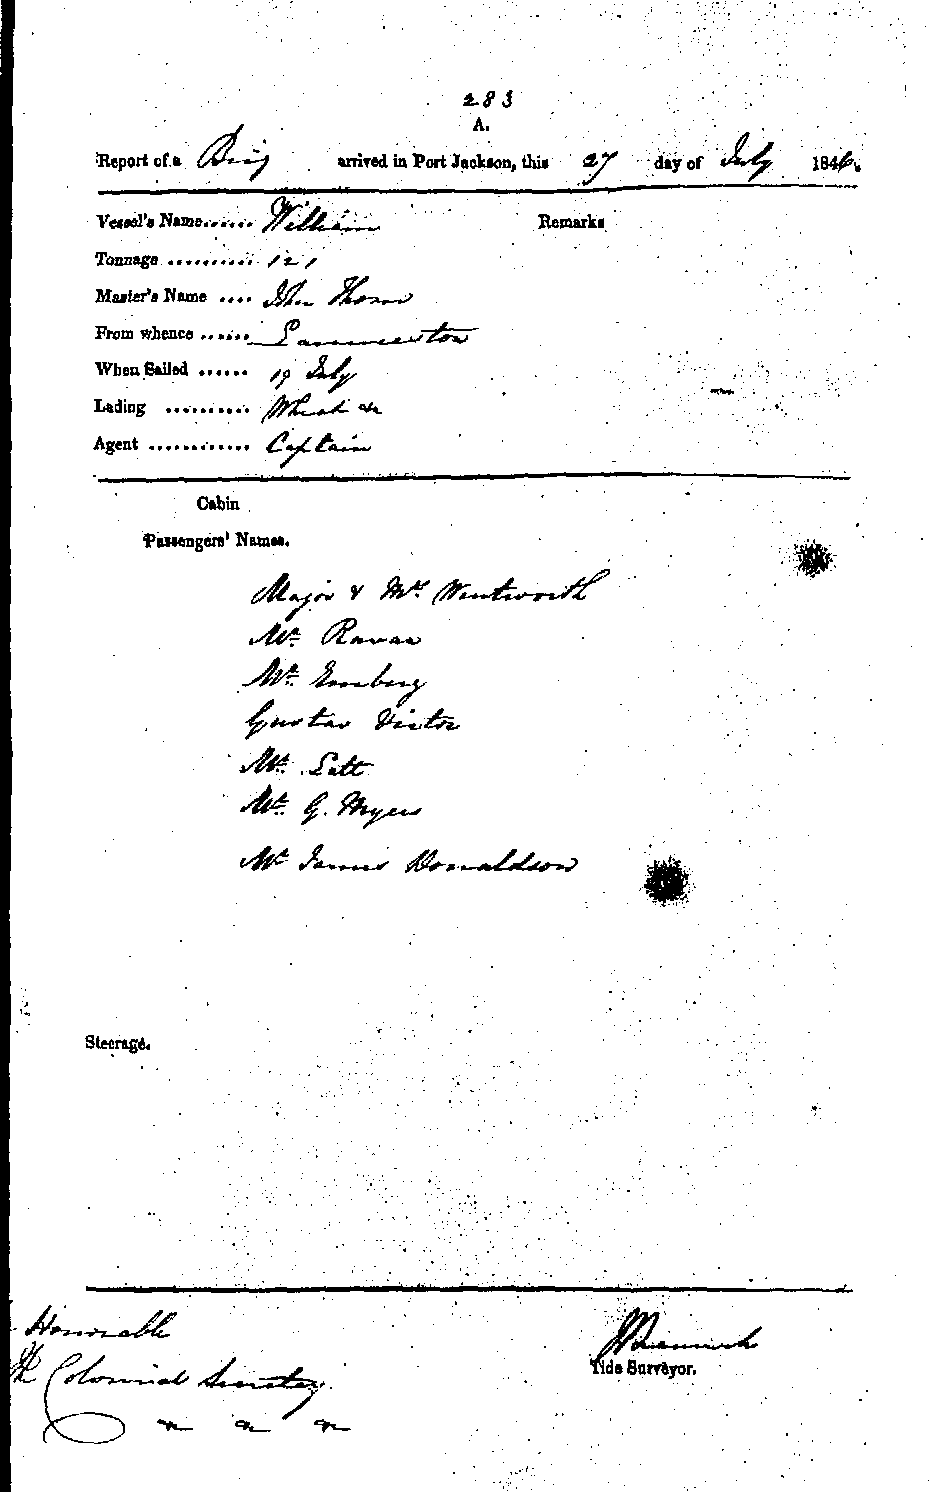 283
A.
Report of a Brig arrived in Port Jackson, this 27 day of July 1846.
Vessel's Name....... William Remarks
Tonnage .......... 121
Master's Name .... John Thom
From whence ....... Launceston
When Sailed ...... 19 July
Lading .......... Wheat &c
Agent ............ Captain
Cabin
Passengers' Names.
Major & Mrs. Wentworth
Mr. Ravan
Mr.
Gustav Victor
Mr. Latt
Mr. G. Myers
Mr James Donaldson
Steerage.
Honorable
The Colonial Secretary
&c &c &c
Tide Surveyor.